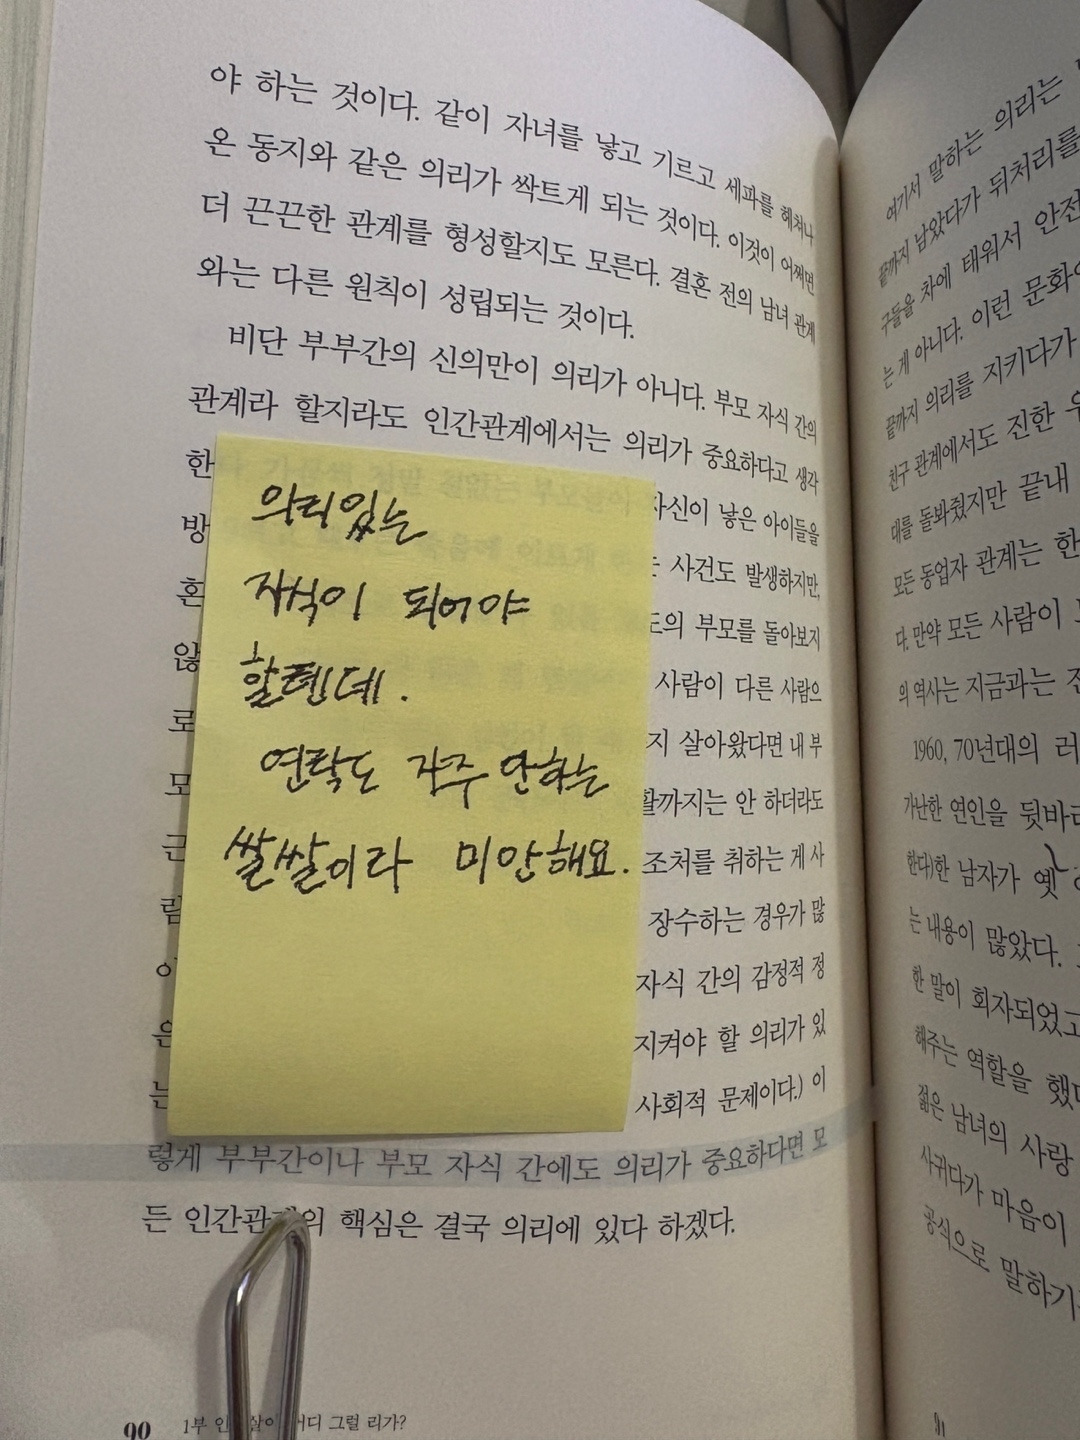 야 하는 것이다. 같이 자녀를 낳고 기르고 세파를 헤쳐나
온 동지와 같은 의리가 싹트게 되는 것이다. 이것이 어쩌면
더 끈끈한 관계를 형성할지도 모른다. 결혼 전의 남녀 관계
와는 다른 원칙이 성립되는 것이다.
비단 부부간의 신의만이 의리가 아니다. 부모 자식 간의
관계라 할지라도 인간관계에서는 의리가 중요하다고 생각
한 자신이 낳은 아이들을
방 사건도 발생하지만,
혼 도의 부모를 돌아보지
않 사람이 다른 사람으
로 지 살아왔다면 내 부
모 활까지는 안 하더라도
근 조처를 취하는 게 사
람 장수하는 경우가 많
자식 간의 감정적 정
은 지켜야 할 의리가 있
는 사회적 문제이다.) 이
렇게 부부간이나 부모 자식 간에도 의리가 중요하다면 모
든 인간관계의 핵심은 결국 의리에 있다 하겠다.
의리있는
자식이 되어야
할텐데.
연락도 자주 안하는
쌀쌀이라 미안해요.
90 1부 그럴 리가?
여기서 말하는 의리는
끝까지 남았다가 뒤처리를
구들을 차에 태워서 안전
는 게 아니다. 이런 문화
끝까지 의리를 지키다가
친구 관계에서도 진한
대를 돌봐줬지만 끝내
모든 동업자 관계는 한
다. 만약 모든 사람이
의 역사는 지금과는
1960, 70년대의 러
가난한 연인을 뒷바
한다)한 남자가 옛
는 내용이 많았다.
한 말이 회자되었고
해주는 역할을 했
젊은 남녀의 사랑
사귀다가 마음이
공식으로 말하기